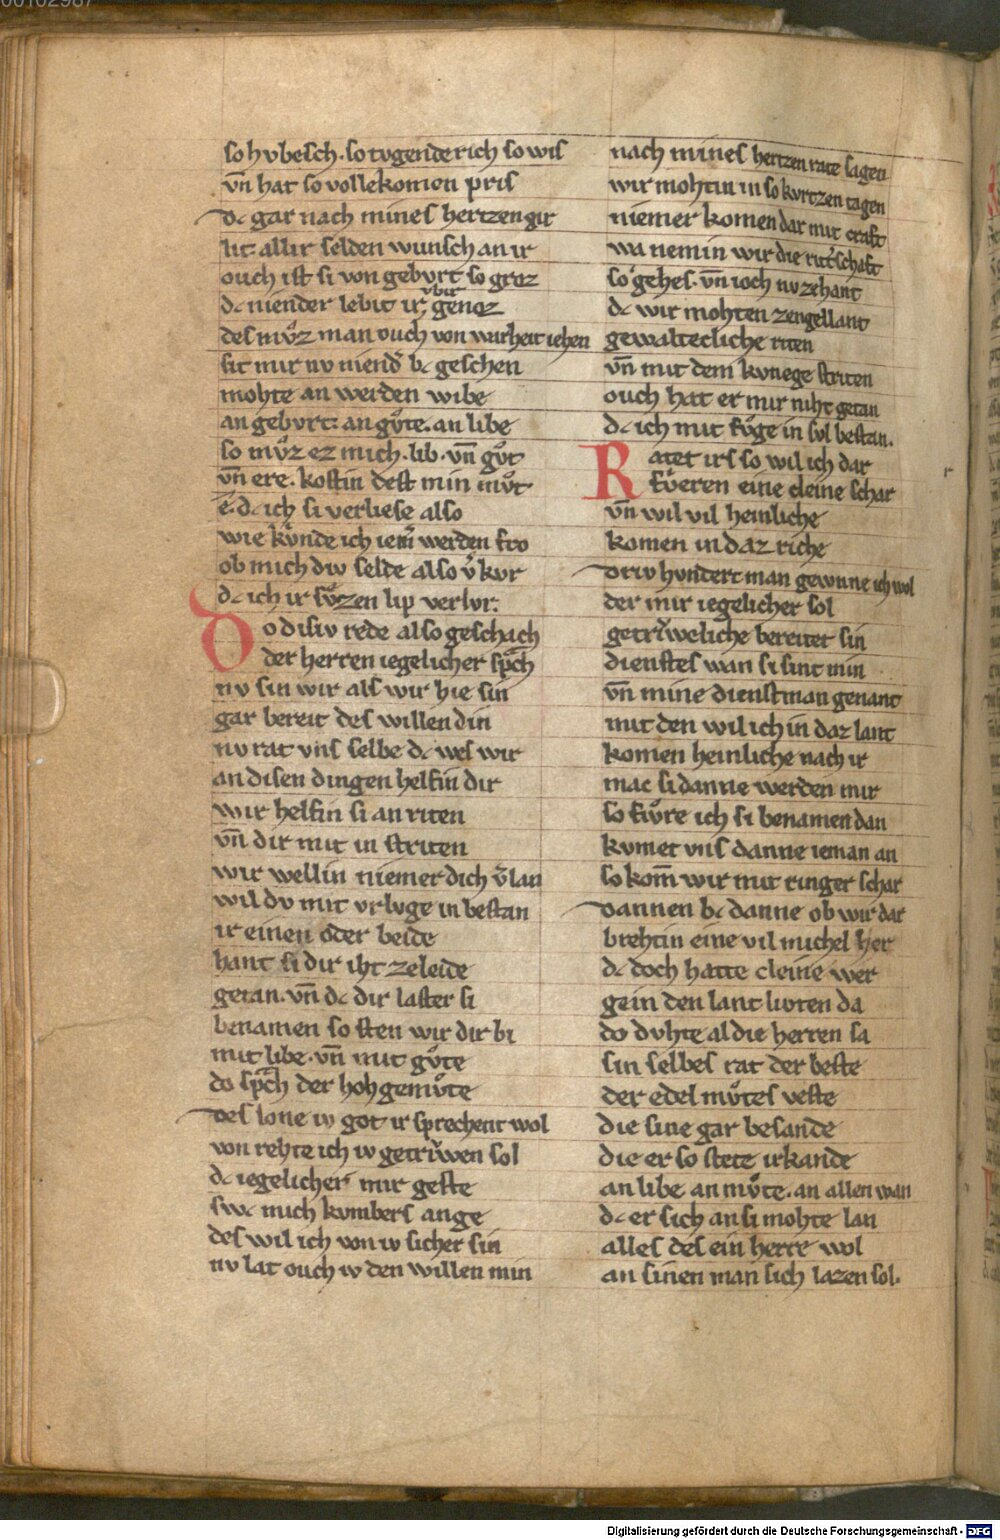 so hvbesch·so tvgenderich so wis
vn̄ hat so vollekomen pris
dc gar nach mines hertzen gir
lit· allir selden wunsch an ir
ouch ist si von gebvrt so groz
dc niender lebit ir vbir genoz
des mvͦz man ouch von warheit iehen
sit mir nv niendˀ bc geschen
mohte an werden wibe
an gebvrt· an gvͤte· an libe
so mvͦz ez mich·lib·vn̄ gvͦt
vn̄ ere·kostin dest min mvͦt
e·dc ich si verliese also
wie kvnde ich iem̄ werden fro
ob mich div selde also v̄kvr
dc ich ir svͤzen lip verlvr·
Do disiv rede also geschach
der herren iegelicher spͣch
nv sin wir als wir hie sin
gar bereit des willen din
nv rat vns selbe dc wes wir
an disen dingen helfin dir
wir helfin si an riten
vn̄ dir mit in striten
wir wellin niemer dich v̄lan
wil dv mit vrlvge in bestan
ir einen oder beide
hant si dir iht ze leide
getan·vn̄ dc dir laster si
benamen so sten wir dir bi
mit libe·vn̄ mit gvͦte
do spͣch der hohgemvͦte
des lone iv got ir sprechent wol
von rehte ich iv getrîwen sol
dc iegelicher mir geste
swc mich kvmbers ange
des wil ich von iv sicher sin
nv lat ouch iv den willen min
nach mines hertzen rate sagen
wir mohtin in so kvrtzen tagen
niemer komen dar mit craft
wa nemin wir die rittˀschaft
so gehes·vn̄ ioch nv zehant
dc wir mohten zengellant
gewaltecliche riten
vn̄ mit dem kvnege striten
ouch hat er mir niht getan
dc ich mit fvͦge in svl bestan·
Ratet irs so wil ich dar
fvͤren eine cleine schar
vn̄ wil vil heinliche
komen in daz riche
driv hvndert man gewinne ich wol
der mir iegelicher sol
getrîweliche bereitet sin
dienstes wan si sint min
vn̄ mine dienstman genant
mit den wil ich in daz lant
komen heinliche nach ir
mac si danne werden mir
so fvͤre ich si benamen dan
kvmet vns danne ieman an
so kom̄ wir mit ringer schar
dannen bc danne ob wir dar
brehtin eine vil michel her
dc doch hatte cleine wer
gein den lant livten da
do dvhte al die herren sa
sin selbes rat der beste
der edel mvͦtes veste
die sine gar besande
die er so stete irkande
an libe an mvͦte·an allen wan
dc er sich an si mohte lan
alles des ein herre wol
an sinen man sich lazen sol·
Digitalisierung gefördert durch die Deutsche Forschungsgemeinschaft - DFG